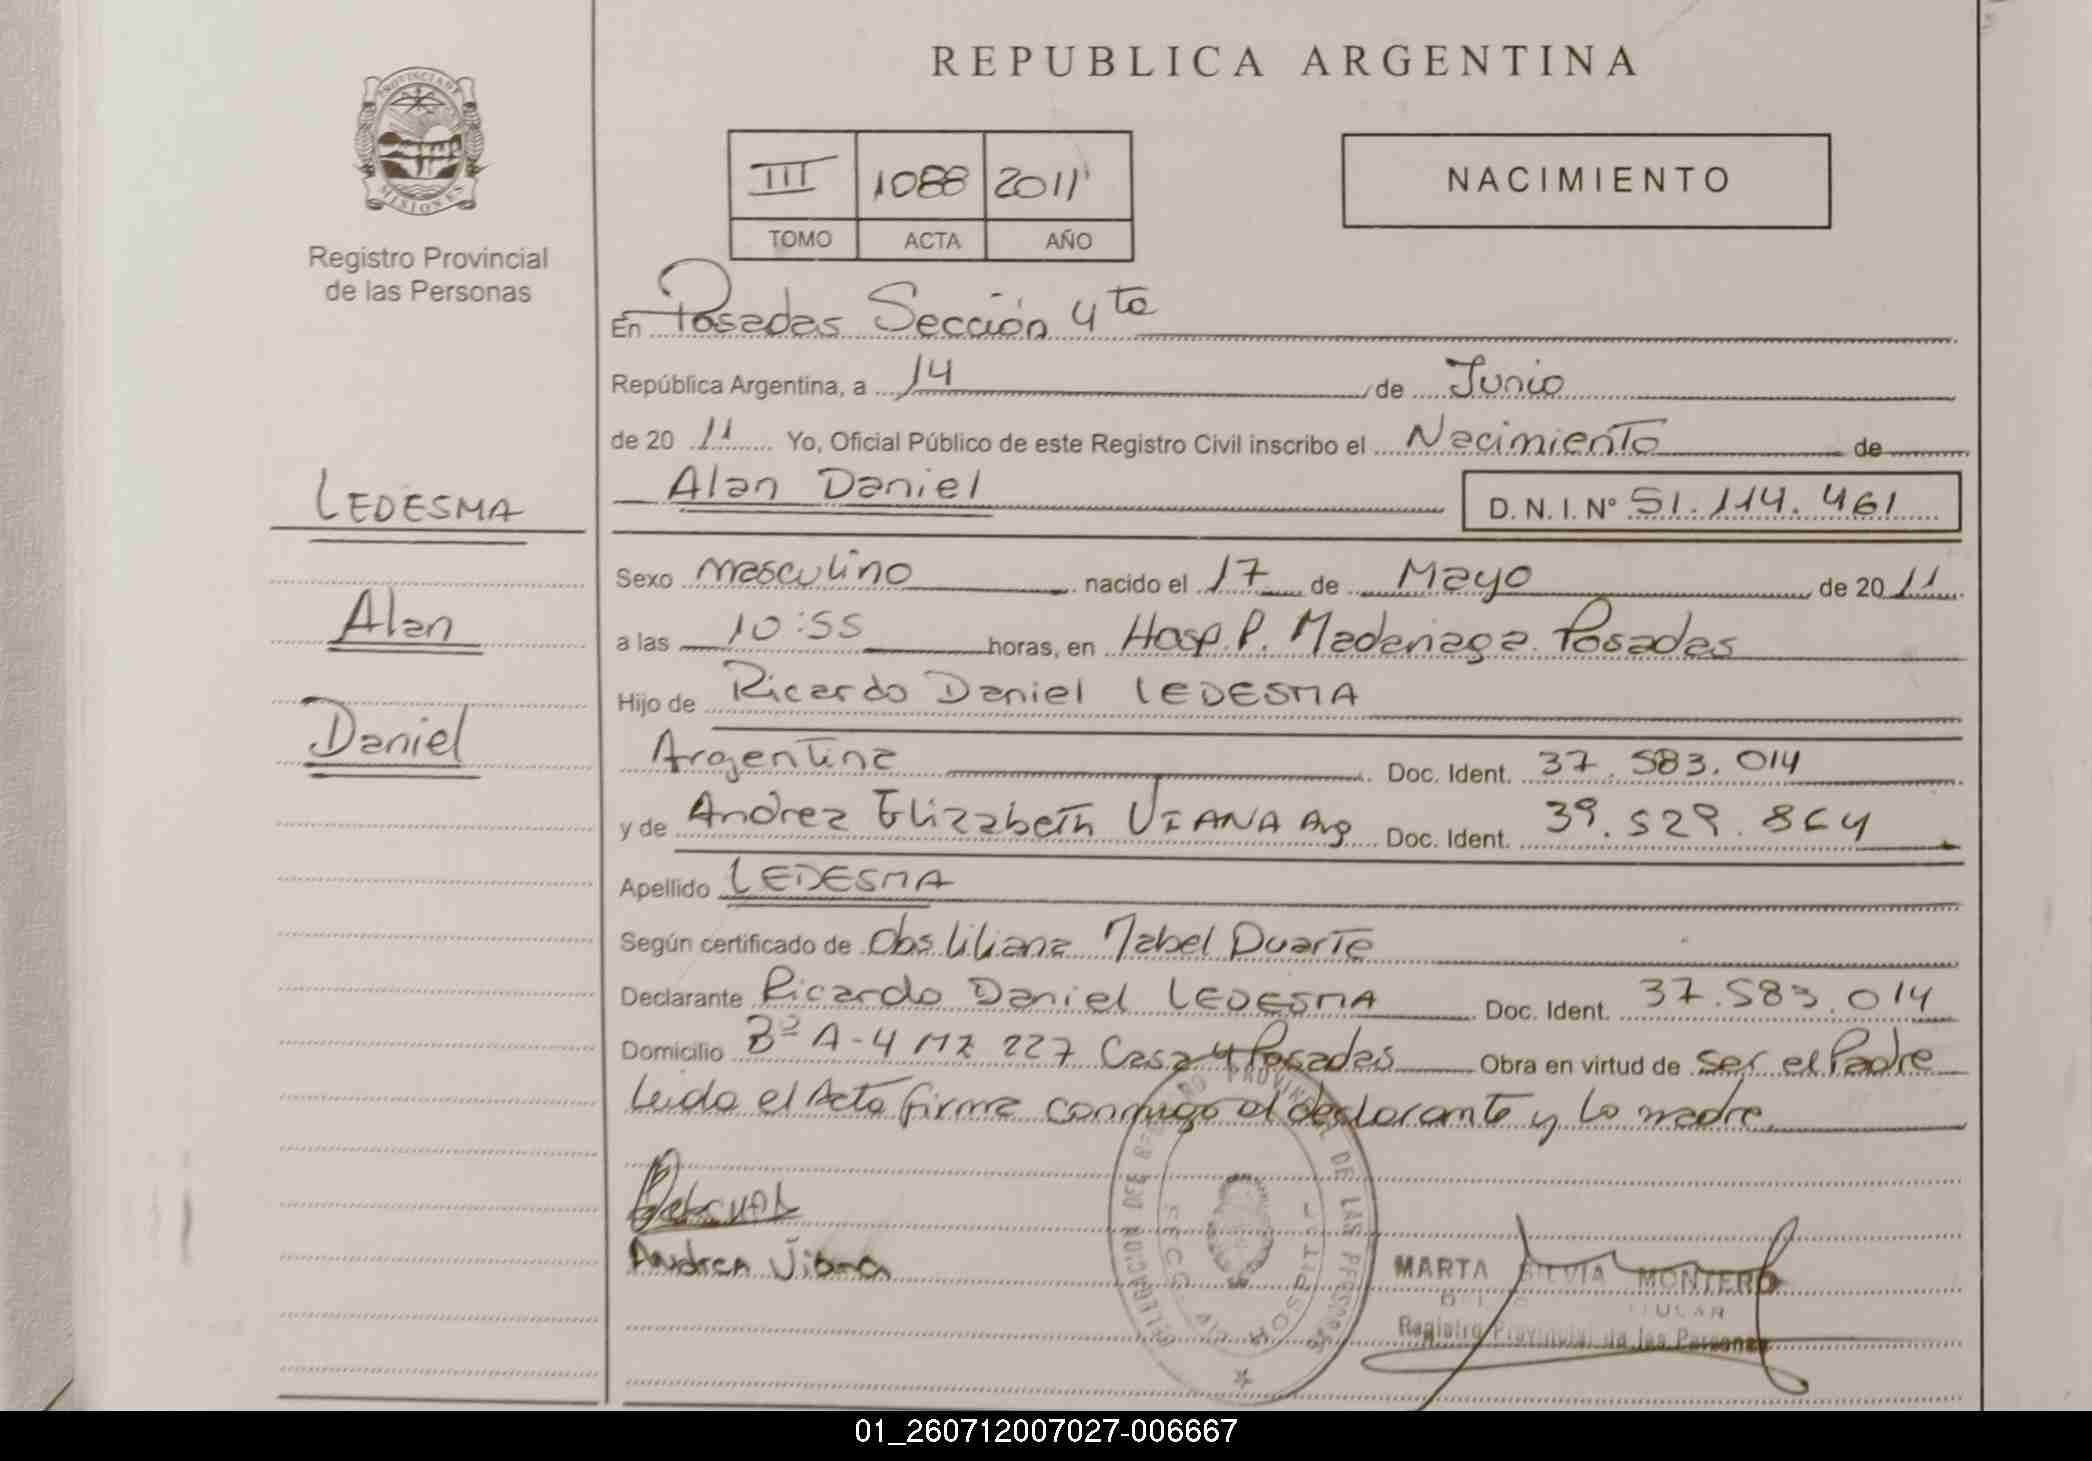 PROVINCIA DE
MISIONES
Registro Provincial
de las Personas
LEDESMA
Alan
Daniel
REPUBLICA ARGENTINA
III 1088 2011
TOMO ACTA AÑO
NACIMIENTO
En Posadas Sección 4ta
República Argentina, a 14 de Junio
de 20 11 Yo, Oficial Público de este Registro Civil inscribo el Nacimiento de
Alan Daniel D. N. I. Nº 51.114.461
Sexo masculino nacido el 17 de Mayo de 20 11
a las 10:55 horas, en Hosp. P. Madariaga. Posadas
Hijo de Ricardo Daniel LEDESMA
Argentina Doc. Ident. 37.583.014
y de Andrea Elizabeth VIANA Arg Doc. Ident. 39.529.864
Apellido LEDESMA
Según certificado de Obs. Liliana Mabel Duarte
Declarante Ricardo Daniel LEDESMA Doc. Ident. 37.583.014
Domicilio Bº A-4 MZ 227 Casa 4 Posadas Obra en virtud de ser el Padre
Leida el Acta firma conmigo el declarante y la madre
Andrea Viana
MARTA SILVIA MONTERO
TITULAR
Registro Provincial de las Personas
01_260712007027-006667